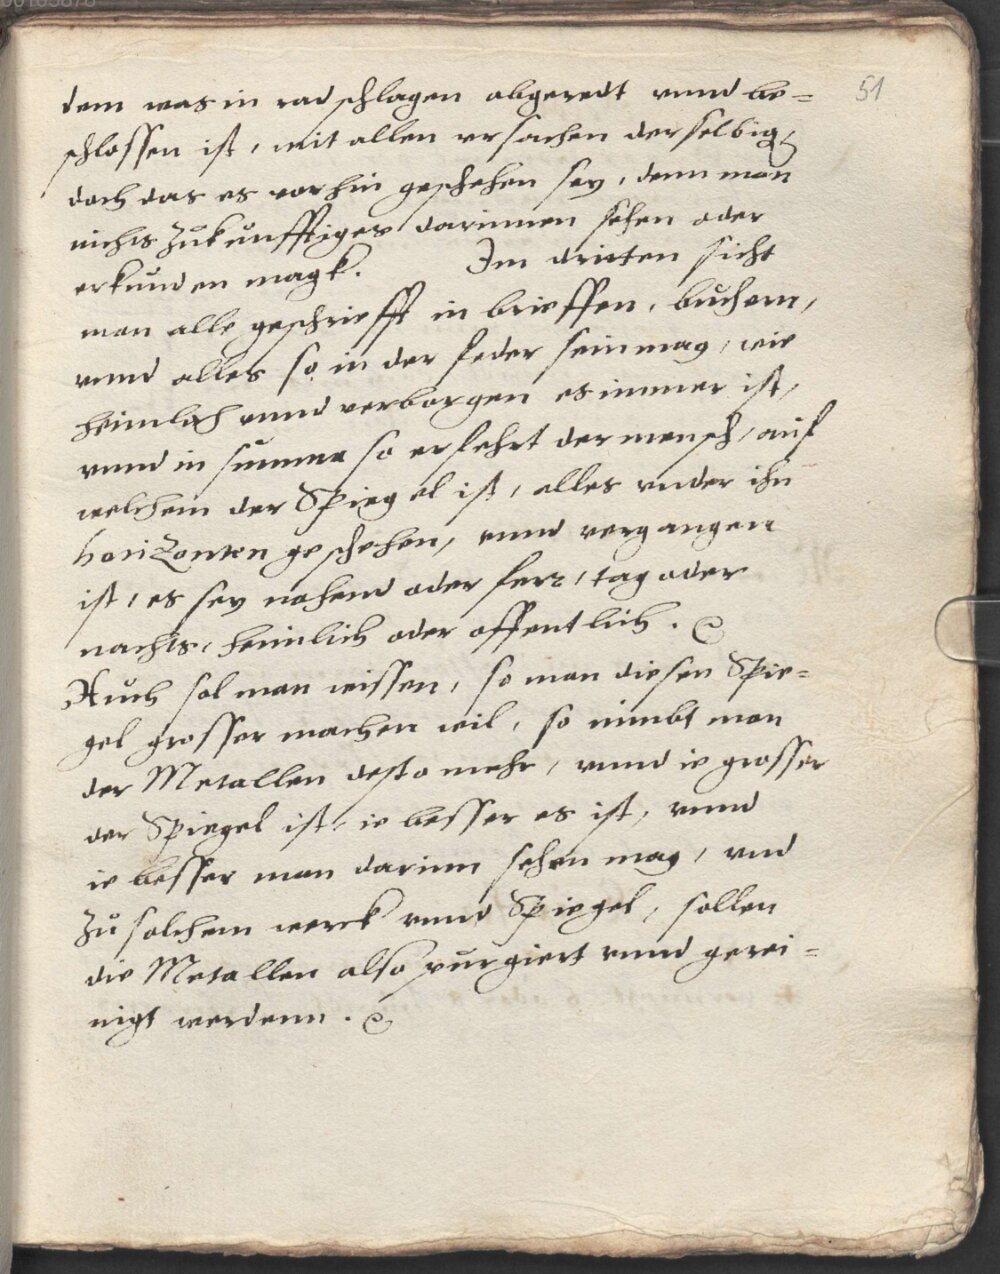 51
dem was in radschlagen abgeredt vnnd be=
schlossen ist, mit allen vrsachen derselbig,
doch das es vorhin geschehen sey, denn man
nichts Zukunfftiges darinnen sehen oder
erkunden magk. Im dritten sicht
man alle geschriefft in brieffen, buchern,
vnnd alles so in der feder sein mag, wie
heimlich vnnd verborgen es immer ist,
vnnd in summa so erfehrt der mensch, auf
welchem der Spiegel ist, alles vnder ihn
horiZonten geschehen, vnnd vergangen
ist, es sey nohend oder ferr, tag oder
nachts, heimlich oder offentlich.
Auch sol man wissen, so man diesen Spie=
gel grosser machen wil, so nimbt man
der Metallen desto mehr, vnnd ie grosser
der Spiegel ist, ie besser es ist, vnnd
ie besser man darinn sehen mag, vnd
Zu solchem werck vnnd Spiegel, sollen
die Metallen also purgiert vnnd gerei=
nigt werdenn.